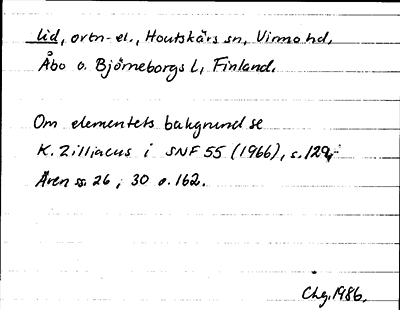 lid, ortn-el., Houtskärs sn, Virmo hd,
Åbo o. Björneborgs l, Finland.
Om elementets bakgrund se
K. Zilliacus i SNF 55 (1966), s. 129,
Även ss. 26, 30 o. 162.
Chg. 1986.